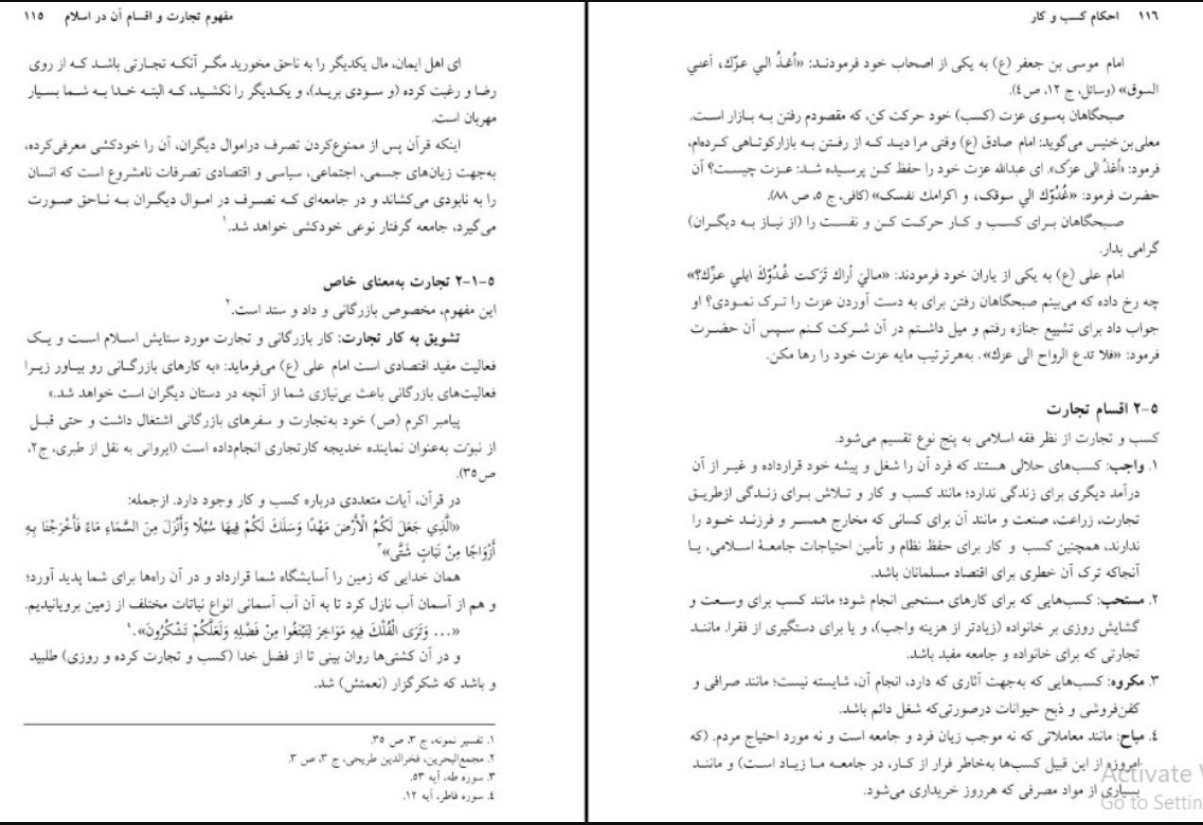 مفهوم تجارت و اقسام آن در اسلام ۱۱۵
ای اهل ایمان، مال یکدیگر را به ناحق مخورید مگر آنکه تجارتی باشد که از روی
رضا و رغبت کرده (و سودی برید)، و یکدیگر را نکشید، که البته خدا به شما بسیار
مهربان است.
اینکه قرآن پس از ممنوع‌کردن تصرف دراموال دیگران، آن را خودکشی معرفی‌کرده،
به‌جهت زیان‌های جسمی، اجتماعی، سیاسی و اقتصادی تصرفات نامشروع است که انسان
را به نابودی می‌کشاند و در جامعه‌ای که تصرف در اموال دیگران به ناحق صورت
می‌گیرد، جامعه گرفتار نوعی خودکشی خواهد شد.۱
۵-۱-۲ تجارت به‌معنای خاص
این مفهوم، مخصوص بازرگانی و داد و ستد است.۲
تشویق به کار تجارت: کار بازرگانی و تجارت مورد ستایش اسلام است و یک
فعالیت مفید اقتصادی است امام علی (ع) می‌فرماید: «به کارهای بازرگانی رو بیاور زیرا
فعالیت‌های بازرگانی باعث بی‌نیازی شما از آنچه در دستان دیگران است خواهد شد.»
پیامبر اکرم (ص) خود به‌تجارت و سفرهای بازرگانی اشتغال داشت و حتی قبل
از نبوّت به‌عنوان نماینده خدیجه کارتجاری انجام‌داده است (ایروانی به نقل از طبری، ج۲،
ص۳۵).
در قرآن، آیات متعددی درباره کسب و کار وجود دارد. ازجمله:
«الَّذِي جَعَلَ لَكُمُ الْأَرْضَ مَهْدًا وَسَلَكَ لَكُمْ فِيهَا سُبُلًا وَأَنْزَلَ مِنَ السَّمَاءِ مَاءً فَأَخْرَجْنَا بِهِ
أَزْوَاجًا مِنْ نَبَاتٍ شَتَّى»۳
همان خدایی که زمین را آسایشگاه شما قرارداد و در آن راه‌ها برای شما پدید آورد؛
و هم از آسمان آب نازل کرد تا به آن آب آسمانی انواع نباتات مختلف از زمین برویانیدیم.
«... وَتَرَى الْفُلْكَ فِيهِ مَوَاخِرَ لِتَبْتَغُوا مِنْ فَضْلِهِ وَلَعَلَّكُمْ تَشْكُرُونَ».۴
و در آن کشتی‌ها روان بینی تا از فضل خدا (کسب و تجارت کرده و روزی) طلبید
و باشد که شکرگزار (نعمتش) شد.
۱. تفسیر نمونه، ج ۳، ص ۳۵.
۲. مجمع‌البحرین، فخرالدین طریحی، ج ۳، ص ۳.
۳. سوره طه، آیه ۵۳.
۴. سوره فاطر، آیه ۱۲.
۱۱۶ احکام کسب و کار
امام موسی بن جعفر (ع) به یکی از اصحاب خود فرمودند: «اُغدُ الي عزّك، اَعني
السوق» (وسائل، ج ۱۲، ص٤).
صبحگاهان به‌سوی عزت (کسب) خود حرکت کن، که مقصودم رفتن به بازار است.
معلی‌بن‌خنیس می‌گوید: امام صادق (ع) وقتی مرا دید که از رفتن به بازارکوتاهی کرده‌ام،
فرمود: «اُغدُ الی عزّک». ای عبدالله عزت خود را حفظ کن پرسیده شد: عزت چیست؟ آن
حضرت فرمود: «غُدُوّك الي سوقك، و اکرامك نفسك» (کافی، ج ۵، ص ۸۸).
صبحگاهان برای کسب و کار حرکت کن و نفست را (از نیاز به دیگران)
گرامی بدار.
امام علی (ع) به یکی از یاران خود فرمودند: «ماليَ اَراك تَرَكت غُدوّكَ ايلي عزّك؟»
چه رخ داده که می‌بینم صبحگاهان رفتن برای به دست آوردن عزت را ترک نمودی؟ او
جواب داد برای تشییع جنازه رفتم و میل داشتم در آن شرکت کنم سپس آن حضرت
فرمود: «فلا تدع الرواح الی عزك». به‌هرترتیب مایه عزت خود را رها مکن.
۵-۲ اقسام تجارت
کسب و تجارت از نظر فقه اسلامی به پنج نوع تقسیم می‌شود.
۱. واجب: کسب‌های حلالی هستند که فرد آن را شغل و پیشه خود قرارداده و غیر از آن
درآمد دیگری برای زندگی ندارد؛ مانند کسب و کار و تلاش برای زندگی ازطریق
تجارت، زراعت، صنعت و مانند آن برای کسانی که مخارج همسر و فرزند خود را
ندارند، همچنین کسب و کار برای حفظ نظام و تأمین احتیاجات جامعهٔ اسلامی، یا
آنجاکه ترک آن خطری برای اقتصاد مسلمانان باشد.
۲. مستحب: کسب‌هایی که برای کارهای مستحبی انجام شود؛ مانند کسب برای وسعت و
گشایش روزی بر خانواده (زیادتر از هزینه واجب)، و یا برای دستگیری از فقرا. مانند
تجارتی که برای خانواده و جامعه مفید باشد.
۳. مکروه: کسب‌هایی که به‌جهت آثاری که دارد، انجام آن، شایسته نیست؛ مانند صرافی و
کفن‌فروشی و ذبح حیوانات درصورتی‌که شغل دائم باشد.
٤. مباح: مانند معاملاتی که نه موجب زیان فرد و جامعه است و نه مورد احتیاج مردم. (که
امروزه از این قبیل کسب‌ها به‌خاطر فرار از کار، در جامعه ما زیاد است) و مانند
بسیاری از مواد مصرفی که هرروز خریداری می‌شود.
Activate
Go to Settin